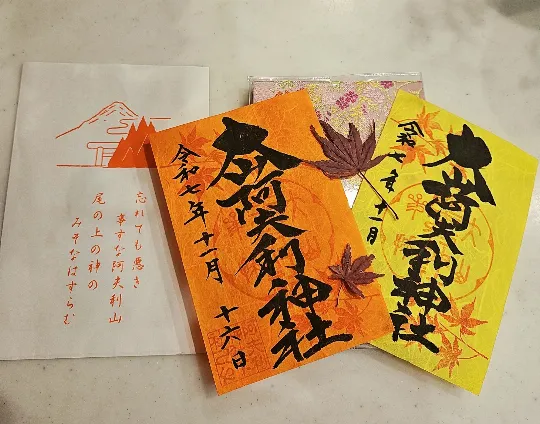 忘れても悪き
事すな阿夫利山
尾の上の神の
みそなはすらむ
大山阿夫利神社
令和七年十一月 十六日
大山阿夫利神社
令和七年十一月